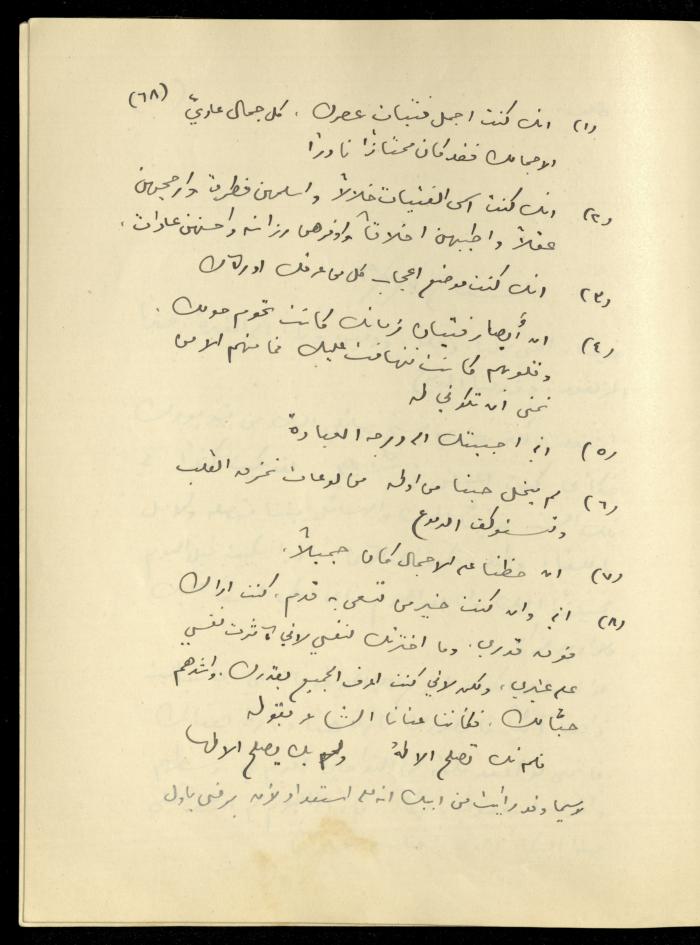 (٦٨)
(١) انك كنت اجمل فتيات عصرك، كل جمال عاديّ
الا جمالك فقد كان ممتازًا نادرًا
(٢) انك كنت اسمى الفتيات خلالاً واسلمهن فطرة وارجحهن
عقلاً واطيبهن اخلاقاً واوفرهن رزانة واحسنهن عادات.
(٣) انك كنت موضع اعجاب كل من عرفك او رآك
(٤) ان أبصار فتيان زمانك كانت تحوم حولك.
وقلوبهم كانت تتهافت عليك فما منهم الا من
تمنى ان تكوني له
(٥) اني احببتك الى درجة العبادة
(٦) لم يخل حبنا من اوله من لوعات تحرق القلب
وتستوكف الدموع
(٧) ان حظنا على الاجمال كان جميلاً.
(٨) اني وان كنت خير من تسعى به قدم، كنت اراك
فوق قدري. وما اخترتك لنفسي لاني آثرت نفسي
على غيري، ولكن لاني كنت اعرف الجميع بقدرك. واشدهم
حبًّا لك. فكأننا عنانا الشاعر بقوله
فلم تك تصلح الا لهُ ولم يك يصلح الا لها
لاسيما وقد رأيت من ابيك انه على استعداد لأن يرضى باول